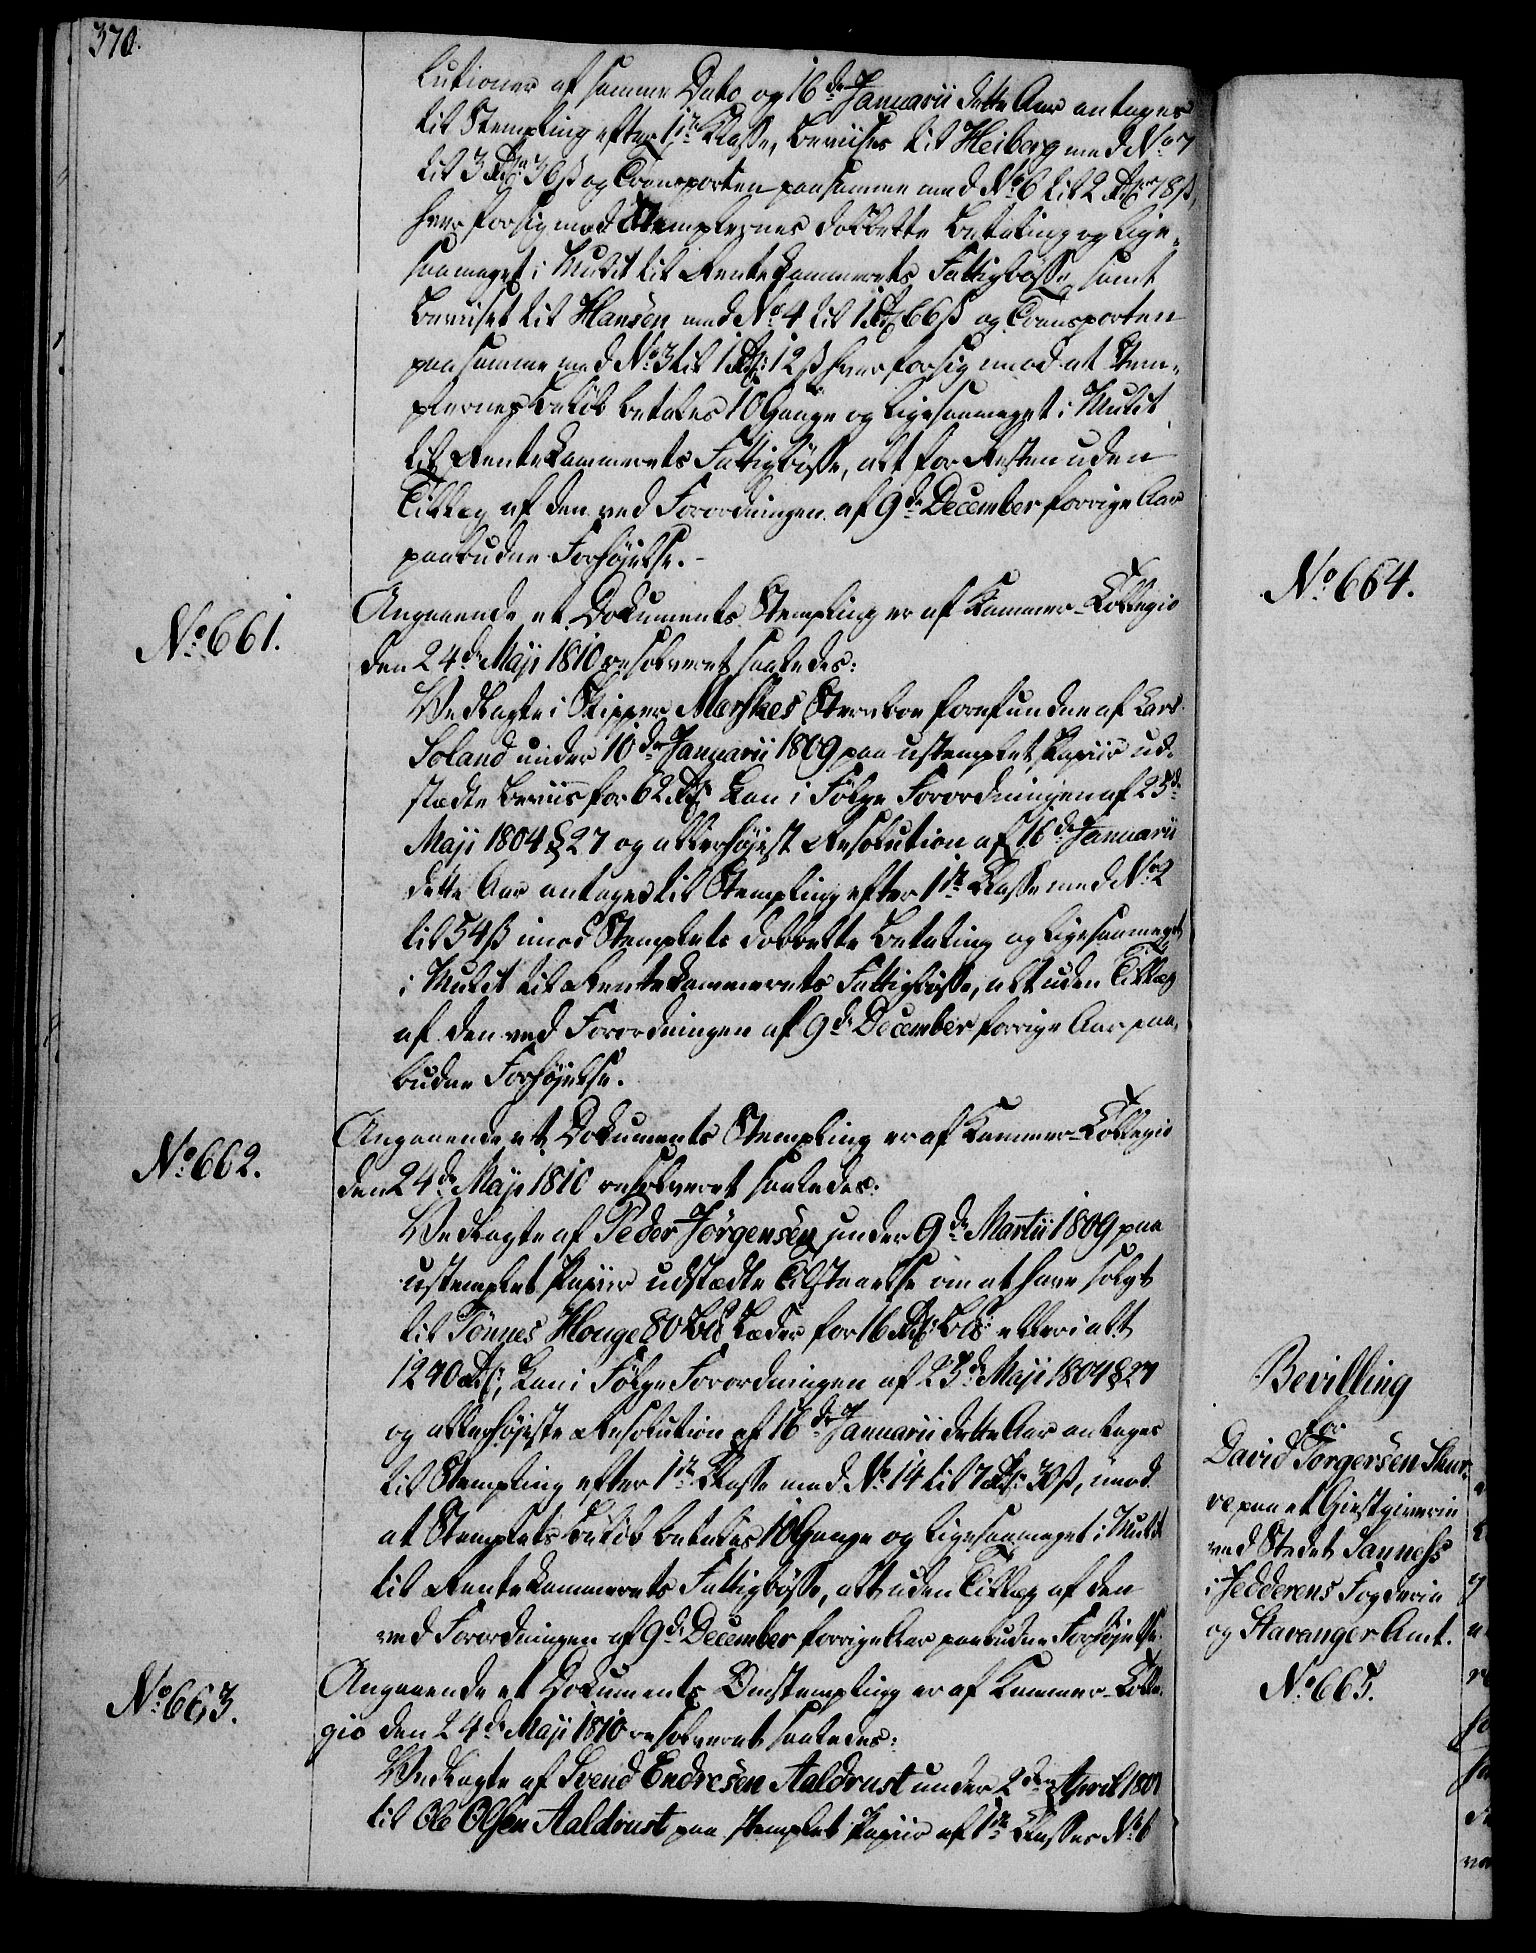 370.
lutioner af samme Dato og 16de Januarii dette Aar antages
til Stempling efter 1ste Klasse, Beviiset til Heiberg med No 7
til 3 Rd 36 ß og Transporten paa samme med No 6 til 2 Rd 78 ß,
hver for sig mod Stemplernes dobbelte Betaling og lige-
saameget i Mulct til Rentekammerets Fattigbøsse, samt
Beviiset til Hansen med No 4 til 1 Rd 66 ß og Transporten
paa samme med No 3 til 1 Rd: 12 ß hver for sig imod at Stem-
plernes Beløb betales 10 Gange og ligesaameget i Mulct
til Rentekammerets Fattigbøsse, alt for Resten uden
Tillæg af den ved Forordningen af 9de December forrige Aar
paabudne Forhøjelse.-
No 661.
Angaaende et Dokuments Stempling er af Kammer-Collegio
den 24de Maji 1810 resolveret saaledes:
Vedlagte i Skipper Marskes Stervboe forefundne af Lars
Soland under 10de Januarii 1809 paa ustemplet Papiir ud-
stædte Beviis for 62 Rd kan i Følge Forordningen af 25de
Maji 1804 § 27 og allerhøjest Resolution af 16de Januarii
dette Aar antages til Stempling efter 1ste Klasse med No 2
til 54 ß imod Stemplets dobbelte Betaling og ligesaameget
i Mulct til Rentekammerets Fattigbøsse, alt uden Tillæg
af den ved Forordningen af 9de December forrige Aar paa-
budne Forhøjelse.
No 662.
Angaaende et Dokuments Stempling er af Kammer-Collegio
den 24de Maji 1810 resolveret saaledes:
Vedlagte af Peder Jørgensen under 9de Martii 1809 paa
ustemplet Papiir udstædte Tilstaaelse om at have solgt
til Tønnes Houge 80 Lod Læder for 16 Rd: eller i alt
1290 Rd:, kan i Følge Forordningen af 25de Maji 1804 § 27
og allerhøjeste Resolution af 16de Januarii dette Aar antages
til Stempling efter 1ste Klasse med No 14 til 7 Rd: 30 ß, imod
at Stemplets Beløb betales 10 Gange og ligesaameget i Mulct
til Rentekammerets Fattigbøsse, alt uden Tillæg af den
ved Forordningen af 9de December forrige Aar paabudne Forhøjelse.
No 663.
Angaaende et Dokuments Omstempling er af Kammer-Colle-
gio den 24de Maji 1810 resolveret saaledes:
Vedlagte af Svend Endresen Aaldrust under 2den April 1801
til Ole Olsen Aaldrust paa stemplet Papiir af 1ste Klasses No 6
No 664.
Bevilling
for
David Torgersen
paa et Giestgiverie
ved Stedet Sanness
i Jedderens Fogderie
og Stavanger Amt.
No 665.